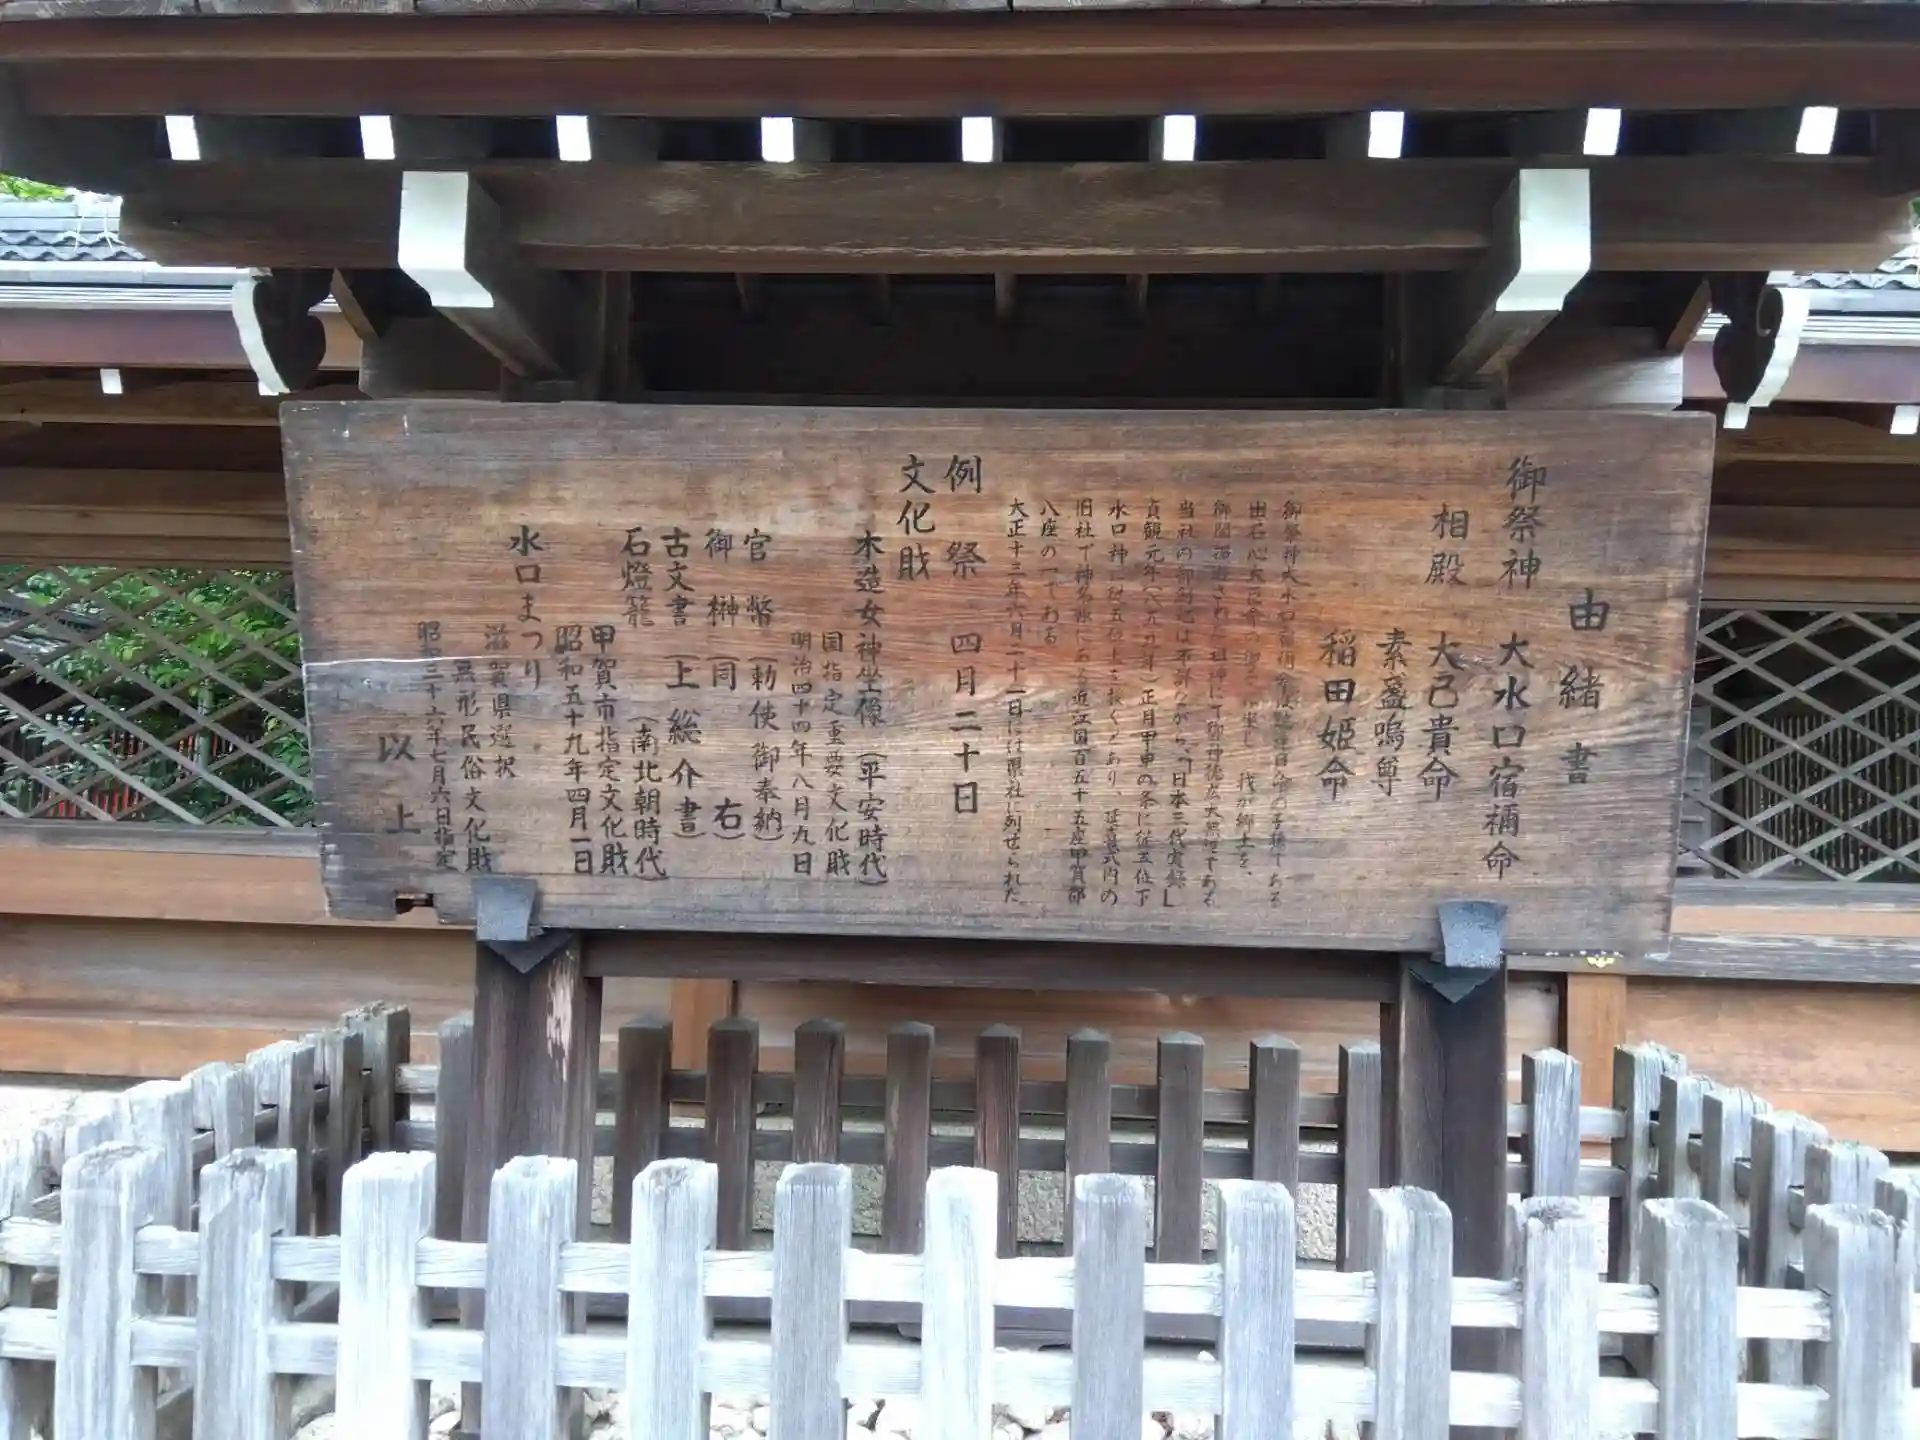 由緒書
御祭神 大水口宿禰命
相殿 大己貴命
素盞嗚尊
稲田姫命
御祭神大水口宿禰命は饒速日命の子孫である
出石心大臣命の御子に坐し 我が郷土を、
御開拓遊された祖神にて御神徳広大無辺である
当社の御創祀は不詳ながら、「日本三代実録」
貞観元年(八五九年)正月甲申の条に従五位下
水口神に従五位上を授くとあり、延喜式内の
旧社で神名帳にある近江国百五十五座甲賀郡
八座の一である
大正十三年六月二十一日には県社に列せられた
例祭 四月二十日
文化財
木造女神坐像(平安時代)
国指定重要文化財
明治四十四年八月九日
官幣(勅使御奉納)
御榊(同 右)
古文書(上総介書)
石燈籠(南北朝時代)
甲賀市指定文化財
昭和五十九年四月一日
水口まつり
滋賀県選択
無形民俗文化財
昭和三十六年七月六日指定
以上